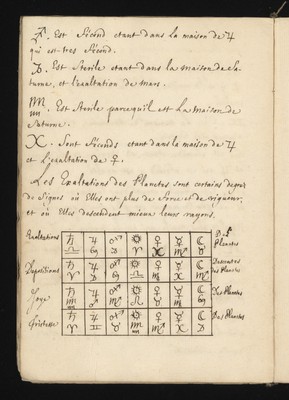 ♐. Est fécond etant dans la maison de ♃
qui est tres fécond.
♑. Est sterile etant dans la maison de Sa-
turne, et l'exaltation de mars.
♒. Est sterile parcequ'il est la maison de
Saturne.
♓. Sont féconds etant dans la maison de ♃
et l'exaltation de ♀.
Les Exaltations des Planetes sont certains degrez
de signes où Elles ont plus de force et de vigueur,
et où Elles descendent mieux leurs rayons.
Exaltations ♄ ♃ ♂ ☼ ♀ ☿ ☾ Des Planetes
♎ ♋ ♑ ♈ ♓ ♍ ♉
Depositions ♄ ♃ ♂ ☼ ♀ ☿ ☾ Descentes des Planetes
♈ ♑ ♋ ♎ ♍ ♓ ♏
Joye ♄ ♃ ♂ ☼ ♀ ☿ ☾ Des Planetes
♒ ♐ ♏ ♌ ♉ ♍ ♋
Tristesse ♄ ♃ ♂ ☼ ♀ ☿ ☾ Des Planetes
♌ ♊ ♉ ♒ ♏ ♓ ♑